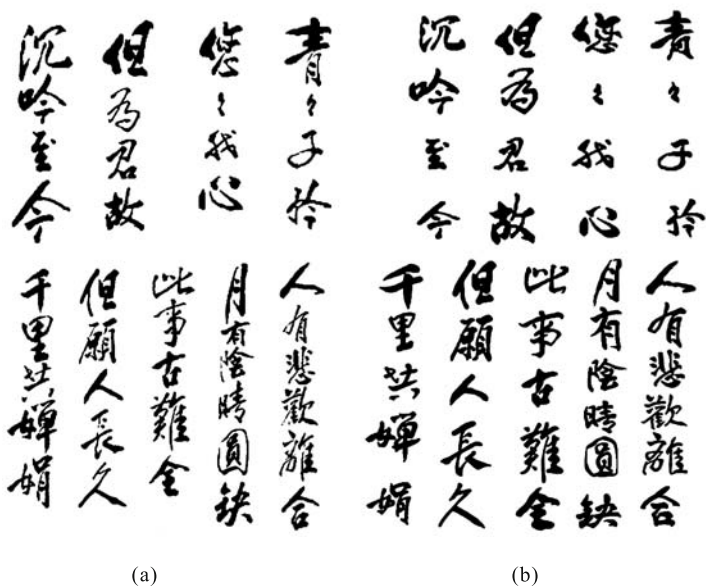 青々子衿
悠々我心
但為君故
沉吟至今
人有悲歡離合
月有陰晴圓缺
此事古難全
但願人長久
千里共嬋娟
(a)
青々子衿
悠々我心
但為君故
沉吟至今
人有悲歡離合
月有陰晴圓缺
此事古難全
但願人長久
千里共嬋娟
(b)